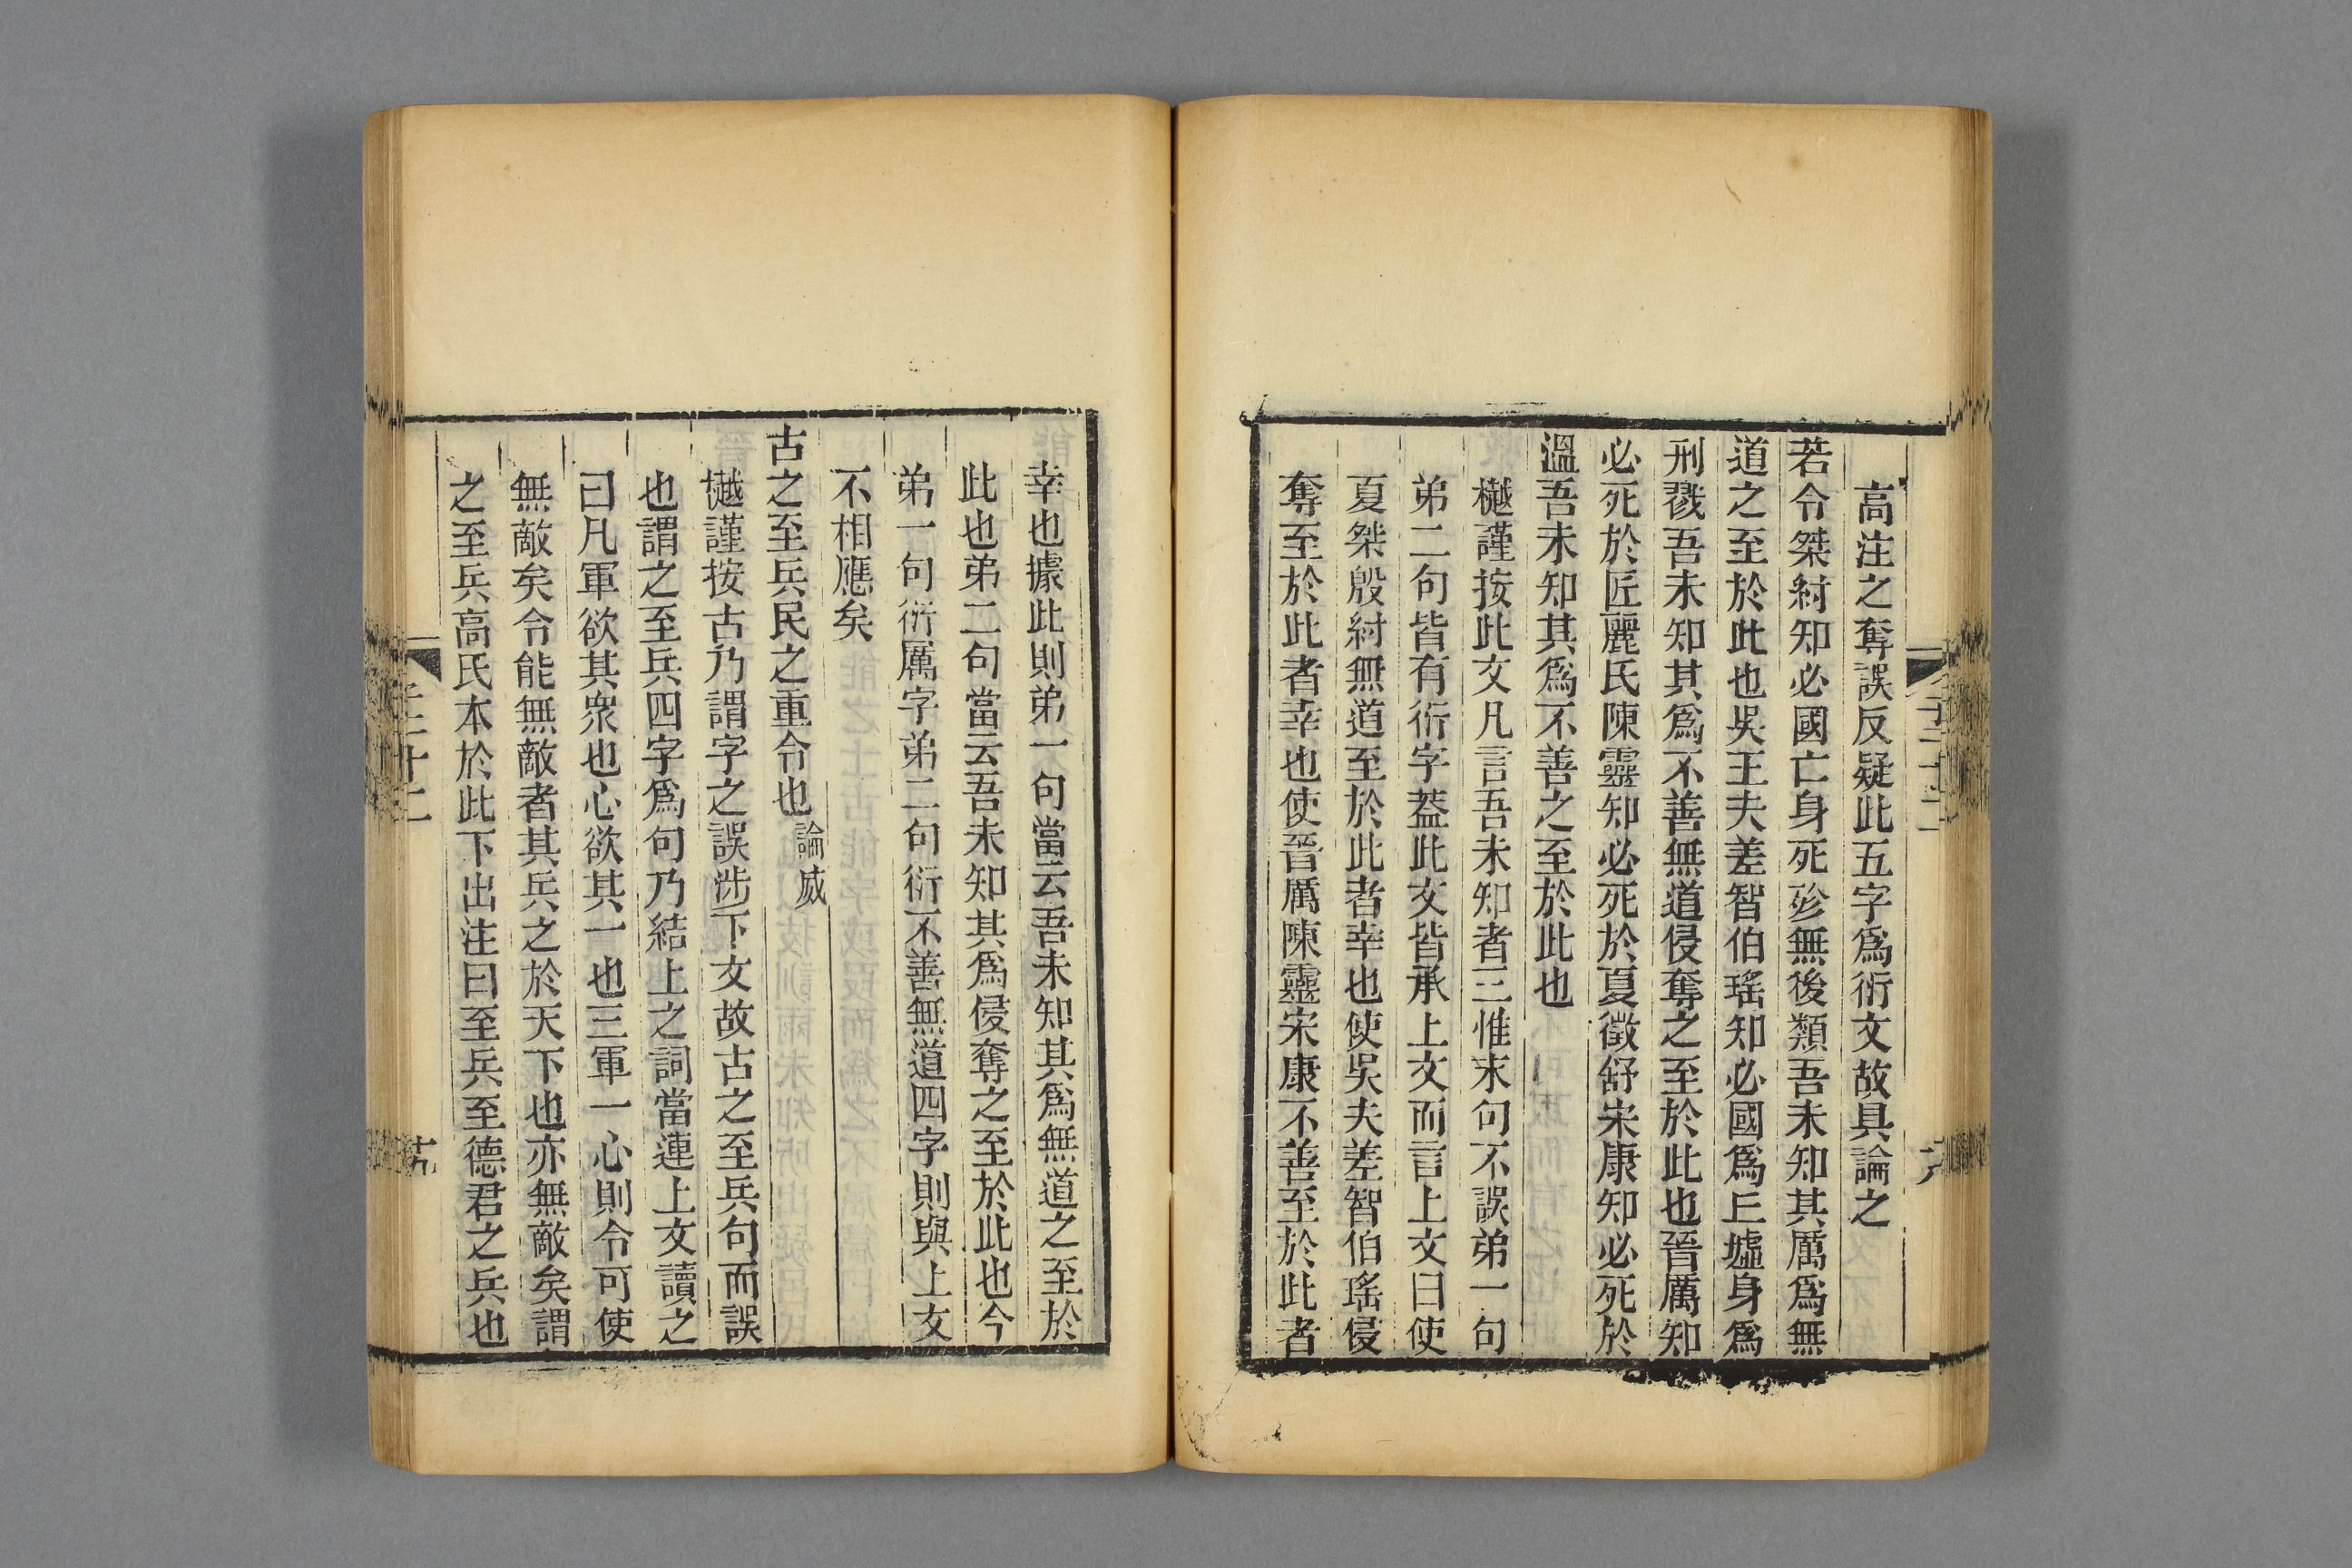 高注之奪誤反疑此五字爲衍文故具論之
若令桀紂知必國亡身死殄無後類吾未知其厲爲無
道之至於此也吳王夫差智伯瑤知必國爲丘墟身爲
刑戮吾未知其爲不善無道侵奪之至於此也晉厲知
必死於匠麗氏陳靈知必死於夏徵舒宋康知必死於
溫吾未知其爲不善之至於此也
樾謹按此文凡言吾未知者三惟末句不誤弟一句
弟二句皆有衍字葢此文皆承上文而言上文曰使
夏桀殷紂無道至於此者幸也使吳夫差智伯瑤侵
奪至於此者幸也使晉厲陳靈宋康不善至於此者
幸也據此則弟一句當云吾未知其爲無道之至於
此也弟二句當云吾未知其爲侵奪之至於此也今
弟一句衍厲字弟二句衍不善無道四字則與上文
不相應矣
古之至兵民之重令也論威
樾謹按古乃謂字之誤涉下文故古之至兵句而誤
也謂之至兵四字爲句乃結上之詞當連上文讀之
曰凡軍欲其衆也心欲其一也三軍一心則令可使
無敵矣令能無敵者其兵之於天下也亦無敵矣謂
之至兵高氏本於此下出注曰至兵至德君之兵也